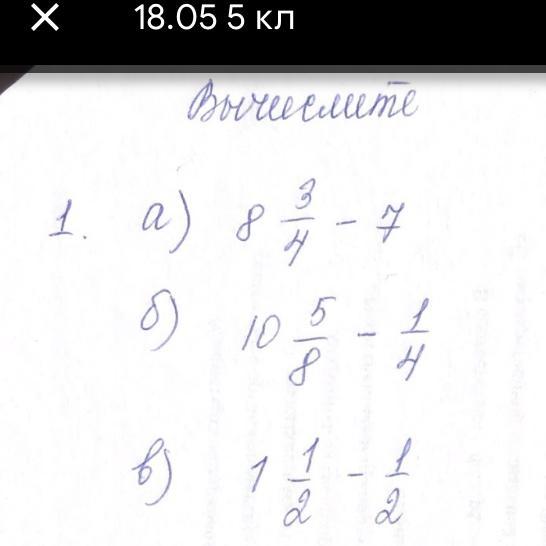 18.05 5 кл
Вычислите
1. а) 8 3/4 - 7
б) 10 5/8 - 1/4
в) 1 1/2 - 1/2